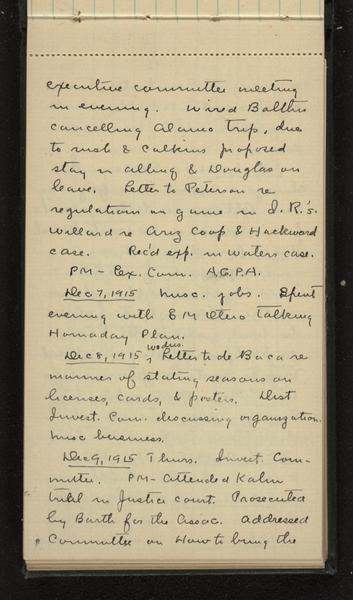 executive committee meeting
in evening. Wired Balthis
cancelling Alamo trip, due
to rush & Calkins proposed
stay in albuq & Douglas on
leave. Letter to Peterson re
regulation on game in I. R.'s.
Willard re Ariz Coop & Hackword
case. Rec'd exp. in Waters case.
PM - Ex. Com. A.G.P.A.
Dec 7, 1915 Misc. jobs. Spent
evening with E M Otero talking
Hornaday Plan.
Dec 8, 1915, Wednes. Letter to de Baca re
manner of stating seasons on
licenses, cards, & posters. Dist
Invest. Com. discussing organization.
Misc business.
Dec 9, 1915 Thurs. Invest. Com-
mittee. PM - attended Kahn
trial in Justice court. Prosecuted
by Barth for the Assoc. Addressed
Committee on How to bring the